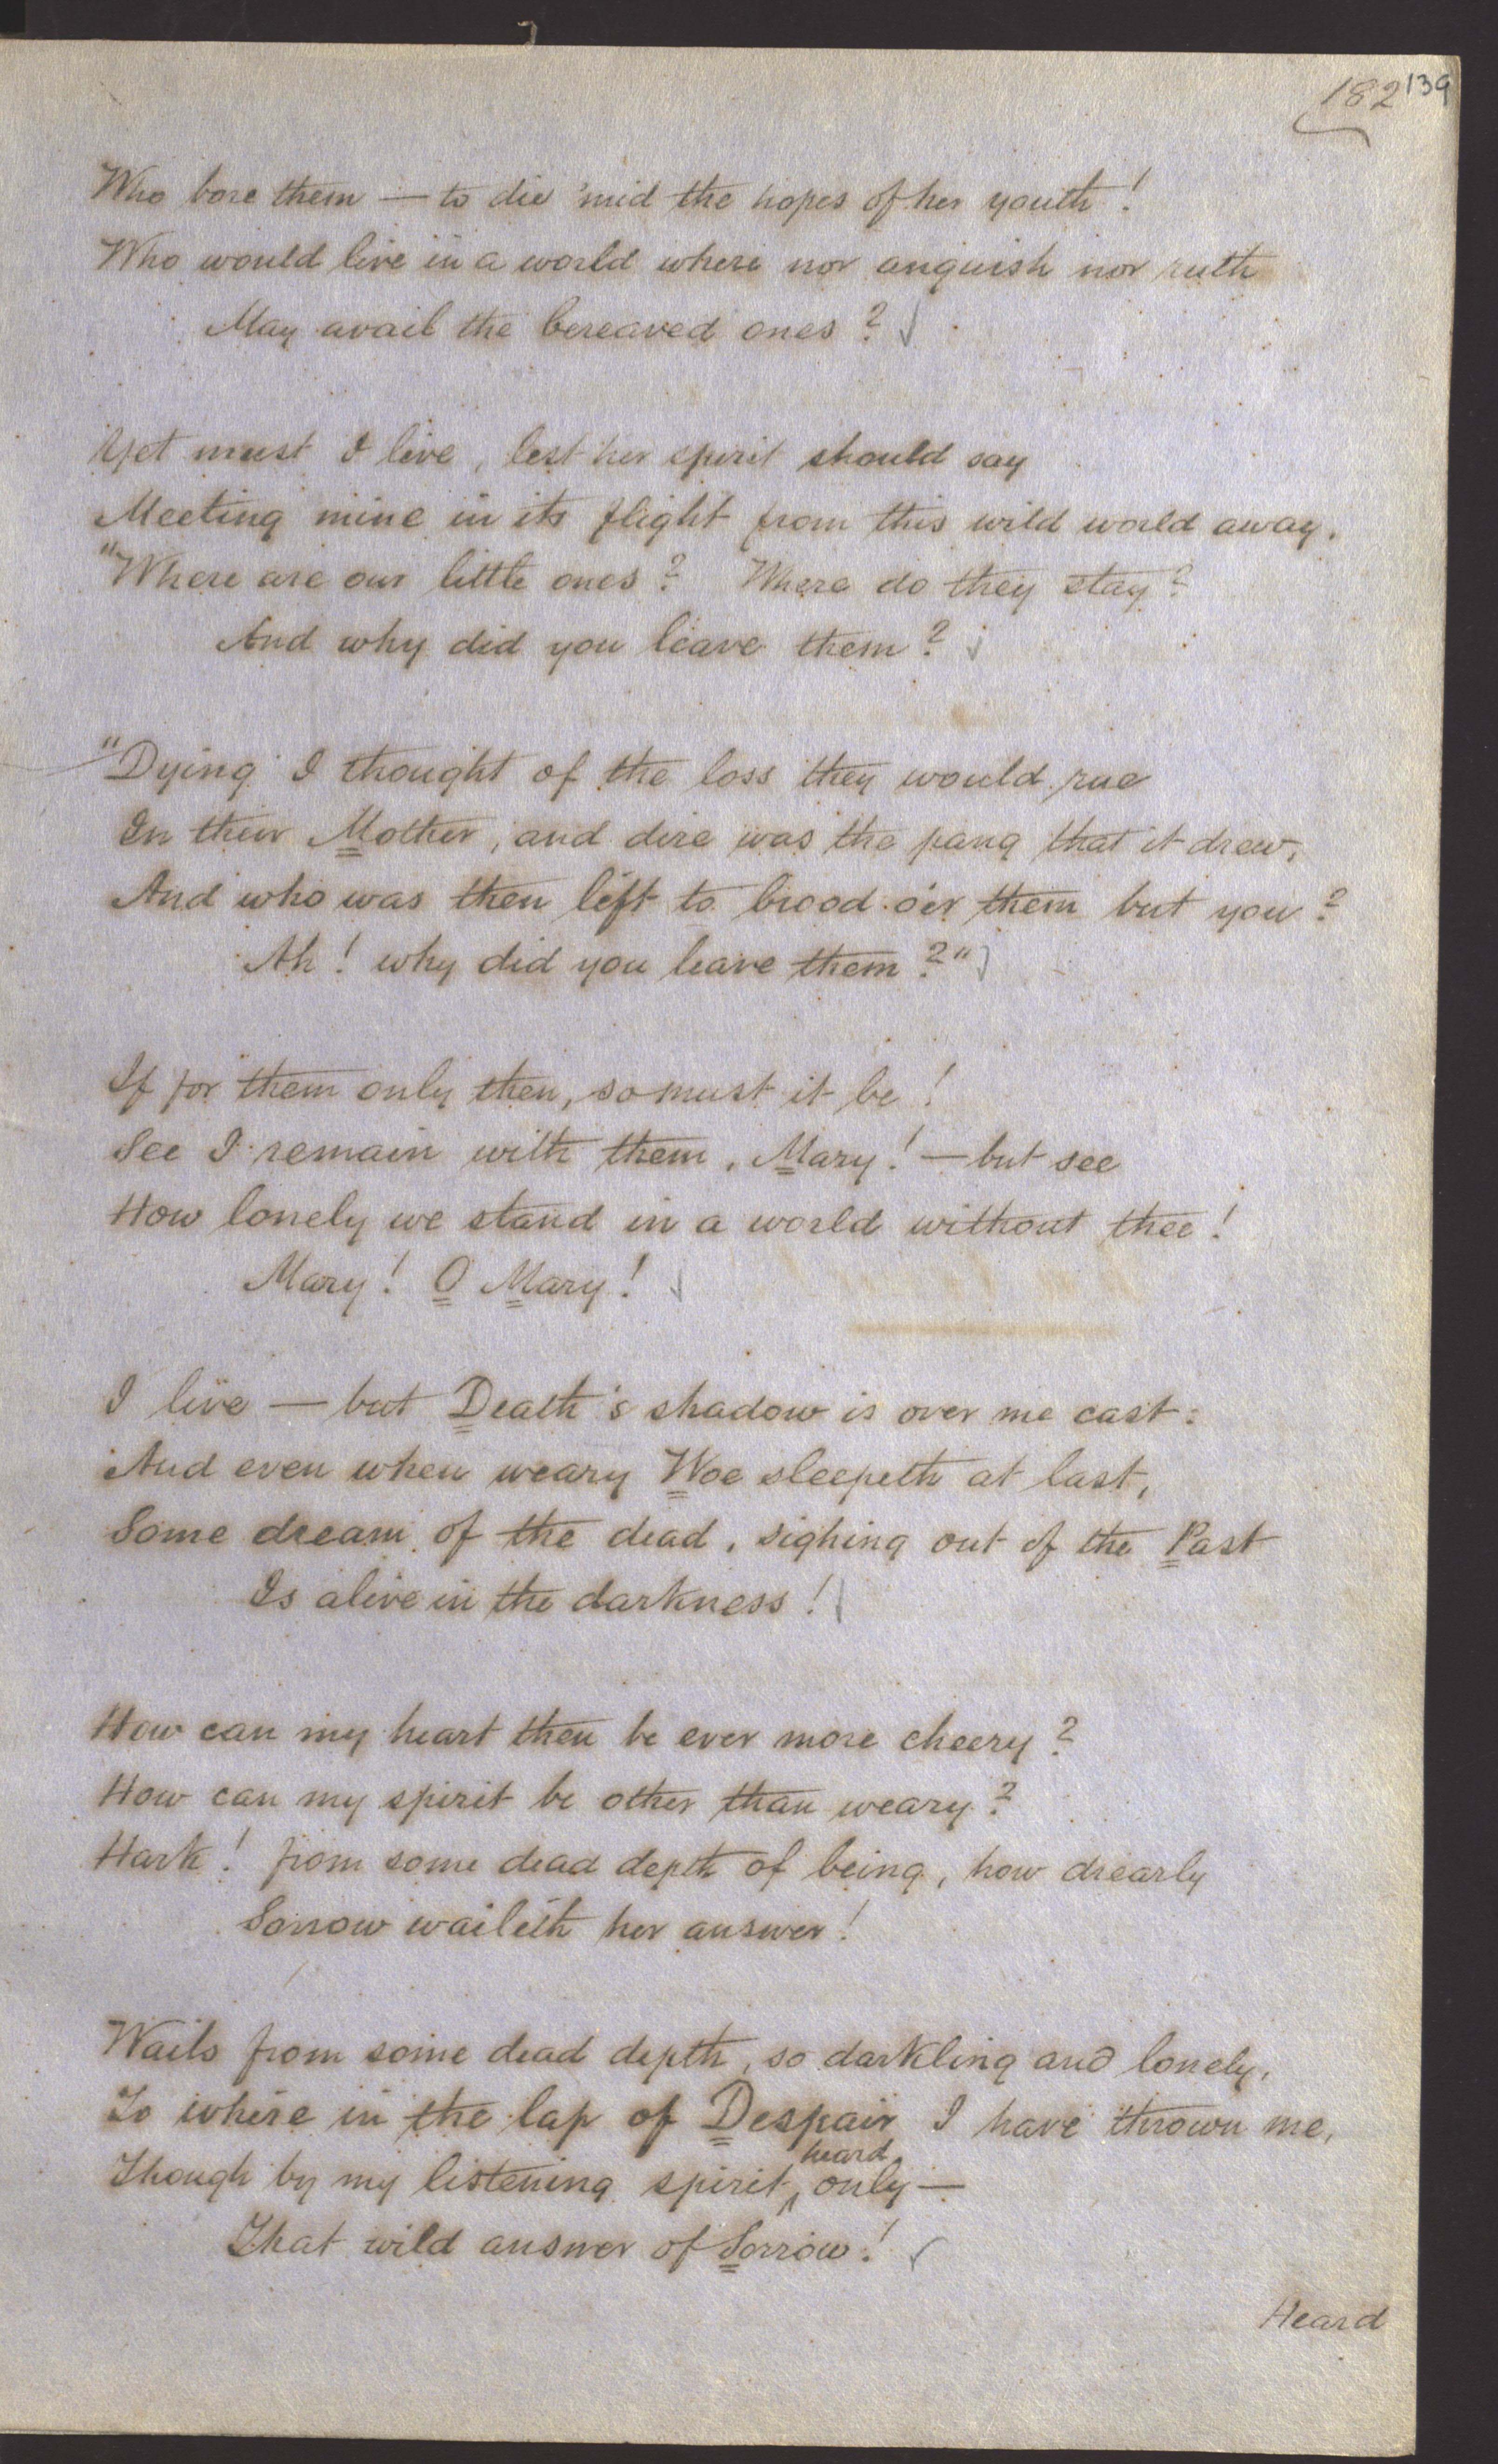 182 139
Who bore them — to die 'mid the hopes of her youth!
Who would live in a world where nor anguish nor ruth
May avail the bereaved ones?
Yet must I live, lest her spirit should say
Meeting mine in its flight from this wild world away,
"Where are our little ones? Where do they stay?
And why did you leave them?
"Dying I thought of the loss they would rue
In their Mother, and dire was the pang that it drew,
And who was then left to brood o'er them but you?
Ah! why did you leave them?"
If for them only then, so must it be!
See I remain with them, Mary! — but see
How lonely we stand in a world without thee!
Mary! O Mary!
I live — but Death's shadow is over me cast:
And even when weary Woe sleepeth at last,
Some dream of the dead, sighing out of the Past
Is alive in the darkness!
How can my heart then be ever more cheery?
How can my spirit be other than weary?
Hark! from some dead depth of being, how drearly
Sorrow waileth her answer!
Wails from some dead depth, so darkling and lonely,
To where in the lap of Despair I have thrown me,
Though by my listening spirit heard only —
That wild answer of Sorrow!
Heard